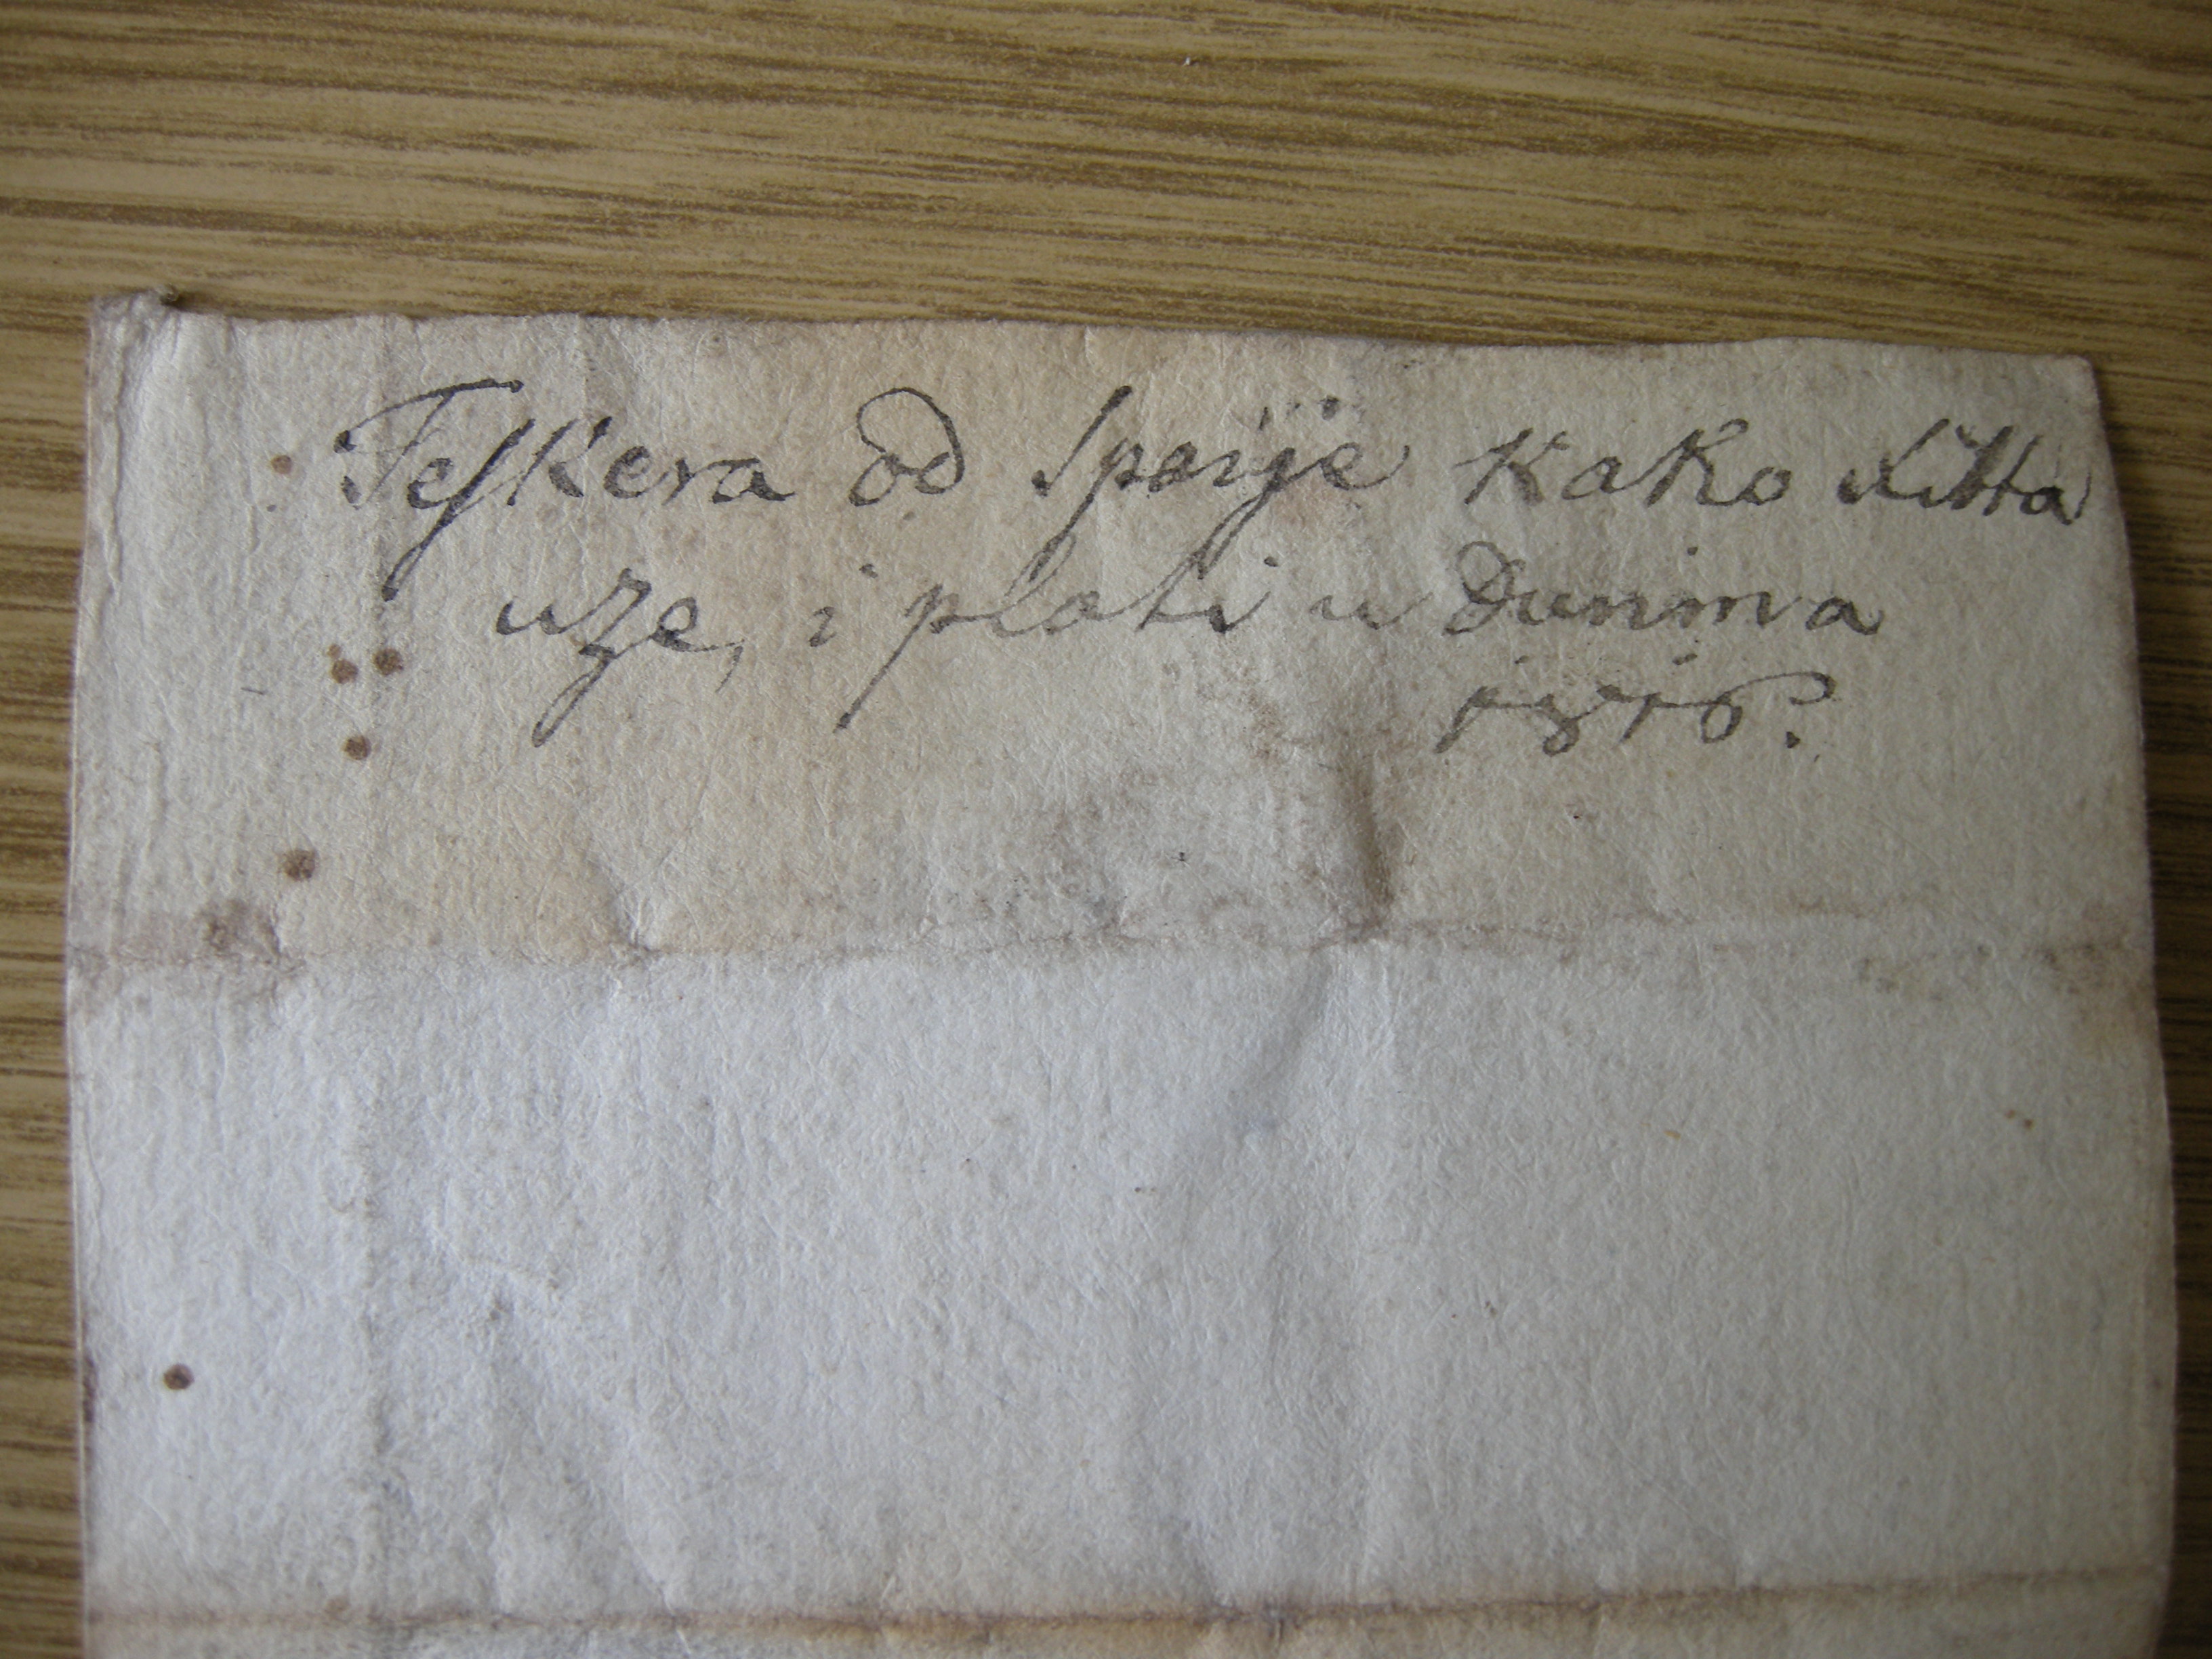 Teſkera od Spaije kako xitta
uze, i plati u Dunima
1816.